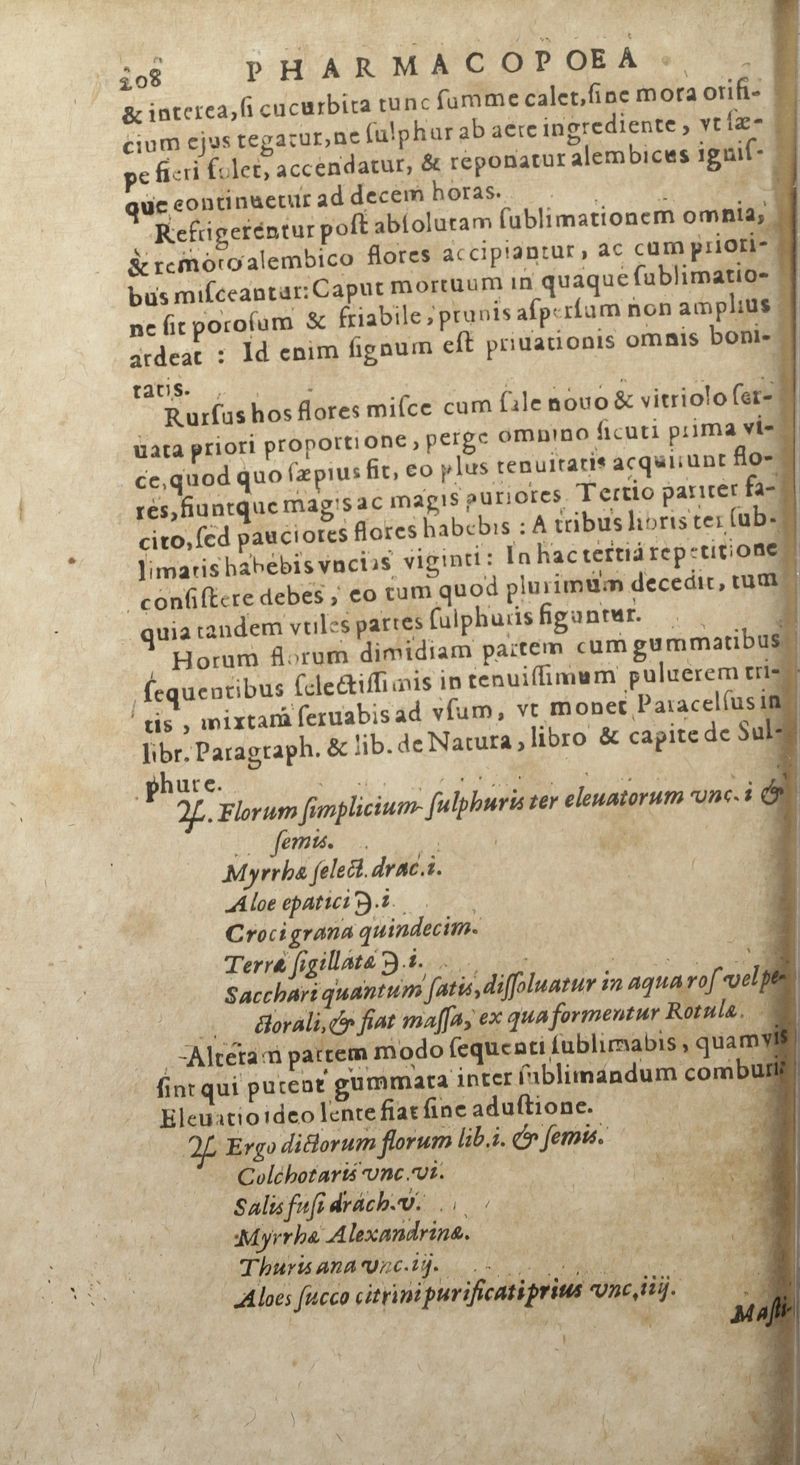 208 PHARMACOPOEA
& interea, ſi cucurbita tunc ſumme calet, ſine mora orifi-
cium ejus tegatur, ne ſulphur ab aere ingrediente, vt ſæ-
pe fieri ſolet, accendatur, & reponatur alembicus igniſ-
que continuetur ad decem horas.
Refrigerentur poſt abſolutam ſublimationem omnia,
& remoto alembico flores accipiantur, ac cum priori-
bus miſceantur: Caput mortuum in quaque ſublimatio-
ne fit poroſum & friabile, prunis aſperſum non amplius
ardeat : Id enim ſignum eſt priuationis omnis boni-
tatis.
Rurſus hos flores miſce cum ſale nouo & vitriolo ſer-
uata priori proportione, perge omnino ſicuti prima vi-
ce, quod quo ſæpius fit, eo plus tenuitatis acquirunt flo-
res, fiuntque magis ac magis puriores. Tertio pariter fa-
cito, ſed pauciores flores habebis : A tribus libris ter ſub-
limatis habebis vncias viginti : In hac tertia repetitione
conſiſtere debes, eo tum quod plurimum decedit, tum
quia tandem vtiles partes ſulphuris figuntur.
Horum florum dimidiam partem cum gummatibus
ſequentibus ſelectiſſimis in tenuiſſimum puluerem tri-
tis, mixtam ſeruabis ad vſum, vt monet Paracelſus in
libr. Paragraph. & lib. de Natura, libro & capite de Sul-
phure.
♃. Florum ſimplicium ſulphuris ter eleuatorum vnc. i &
ſemis.
Myrrhæ ſelect. drac. i.
Aloe epatici ℈. i.
Croci grana quindecim.
Terræ ſigillatæ ℈. i.
Sacchari quantum ſatis, diſſoluatur in aqua roſ vel pe-
ctorali, & fiat maſſa, ex qua formentur Rotulæ.
Alteram partem modo ſequenti ſublimabis, quamvis
ſint qui putent gummata inter ſublimandum comburi:
Eleuatio ideo lente fiat ſine aduſtione.
♃ Ergo dictorum florum lib. i. & ſemis.
Colchotaris vnc. vi.
Salis fuſi drach. v.
Myrrhæ Alexandrinæ.
Thuris ana vnc. iij.
Aloes ſucco citrini purificati prius vnc. iiij.
Maſti-